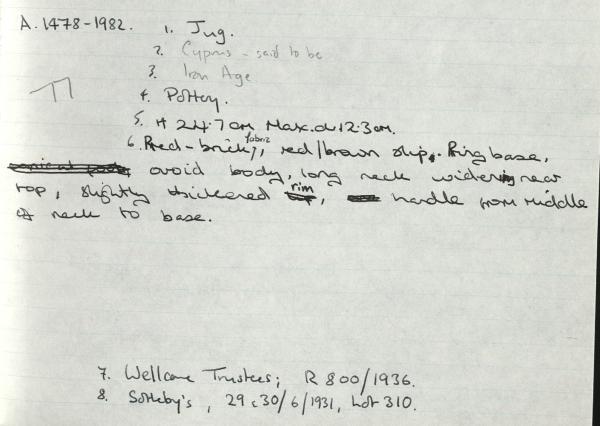 A. 1478-1982. 1. Jug.
2. Cyprus - said to be
3. Iron Age
4. Pottery.
5. H 24.7cm Max.d 12.3cm.
6. Red-brick fabric, red/brown slip. Ring base,
ovoid body, long neck widening near
top, slightly thickened rim, handle from middle
of neck to base.
7. Wellcome Trustees; R 800/1936.
8. Sotheby's, 29 & 30/6/1931, Lot 310.